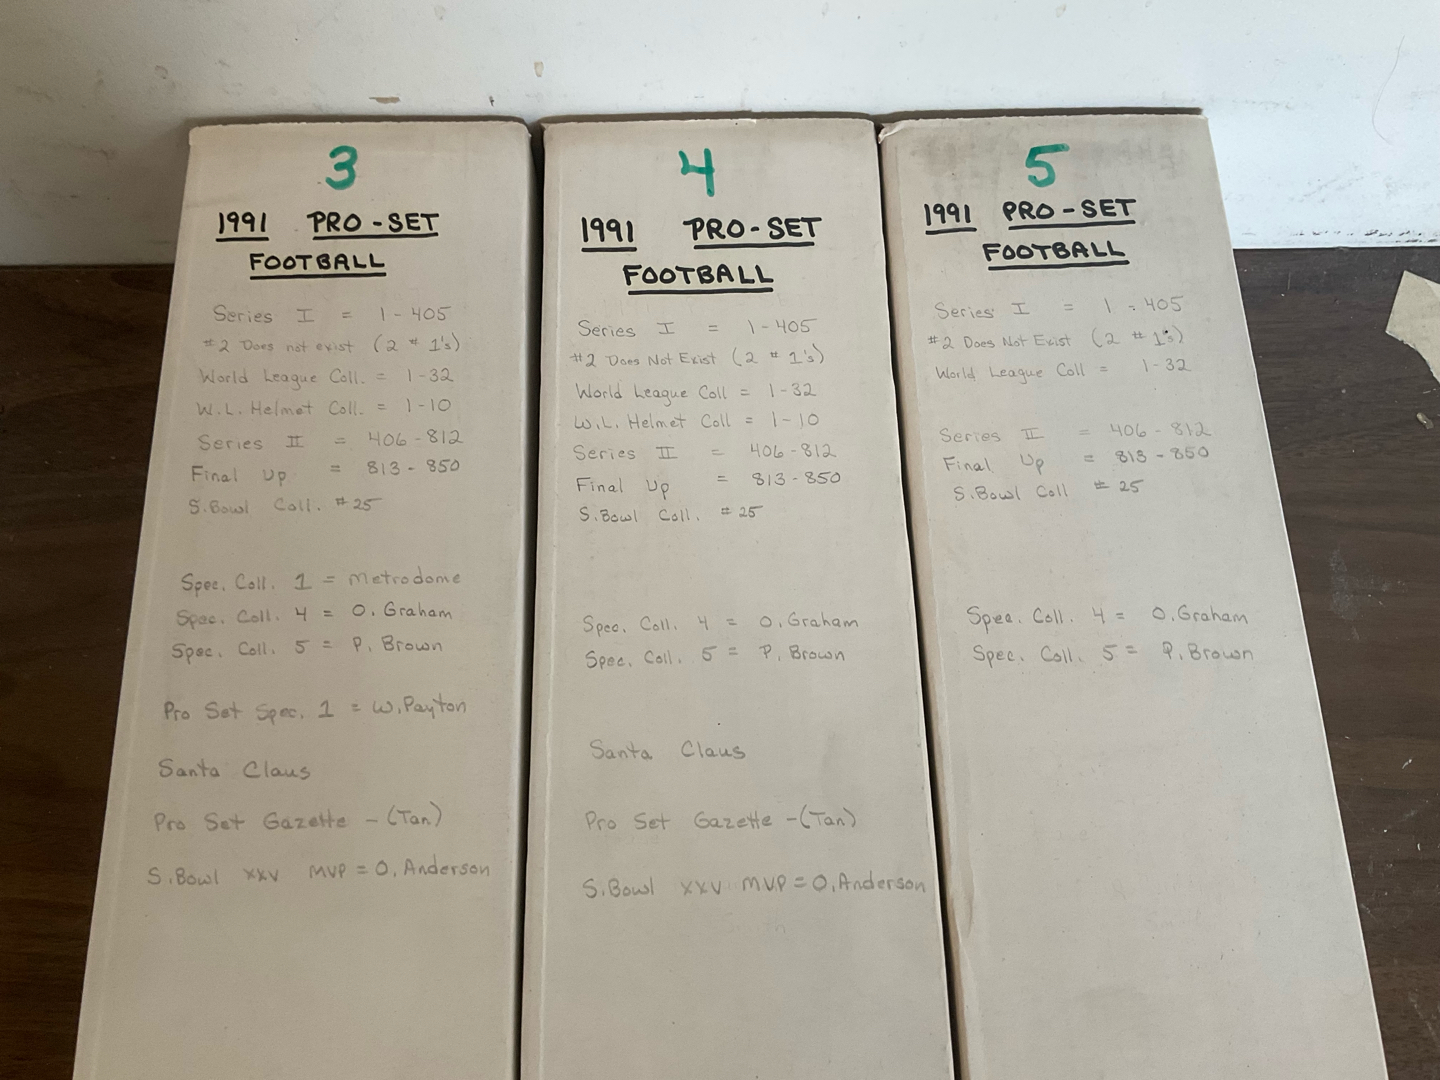 3
1991 PRO-SET
FOOTBALL
Series I = 1-405
#2 Does not exist (2 # 1's)
World League Coll. = 1-32
W.L. Helmet Coll. = 1-10
Series II = 406-812
Final Up = 813-850
S.Bowl Coll. #25
Spec. Coll. 1 = Metrodome
Spec. Coll. 4 = O. Graham
Spec. Coll. 5 = P. Brown
Pro Set Spec. 1 = W. Payton
Santa Claus
Pro Set Gazette - (Tan)
S.Bowl XXV MVP = O. Anderson
4
1991 PRO-SET
FOOTBALL
Series I = 1-405
#2 Does Not Exist (2 # 1's)
World League Coll = 1-32
W.L. Helmet Coll = 1-10
Series II = 406-812
Final Up = 813-850
S.Bowl Coll. #25
Spec. Coll. 4 = O. Graham
Spec. Coll. 5 = P. Brown
Santa Claus
Pro Set Gazette - (Tan)
S.Bowl XXV MVP = O. Anderson
5
1991 PRO-SET
FOOTBALL
Series I = 1-405
#2 Does Not Exist (2 # 1's)
World League Coll = 1-32
Series II = 406-812
Final Up = 813-850
S.Bowl Coll #25
Spec. Coll. 4 = O. Graham
Spec. Coll. 5 = P. Brown